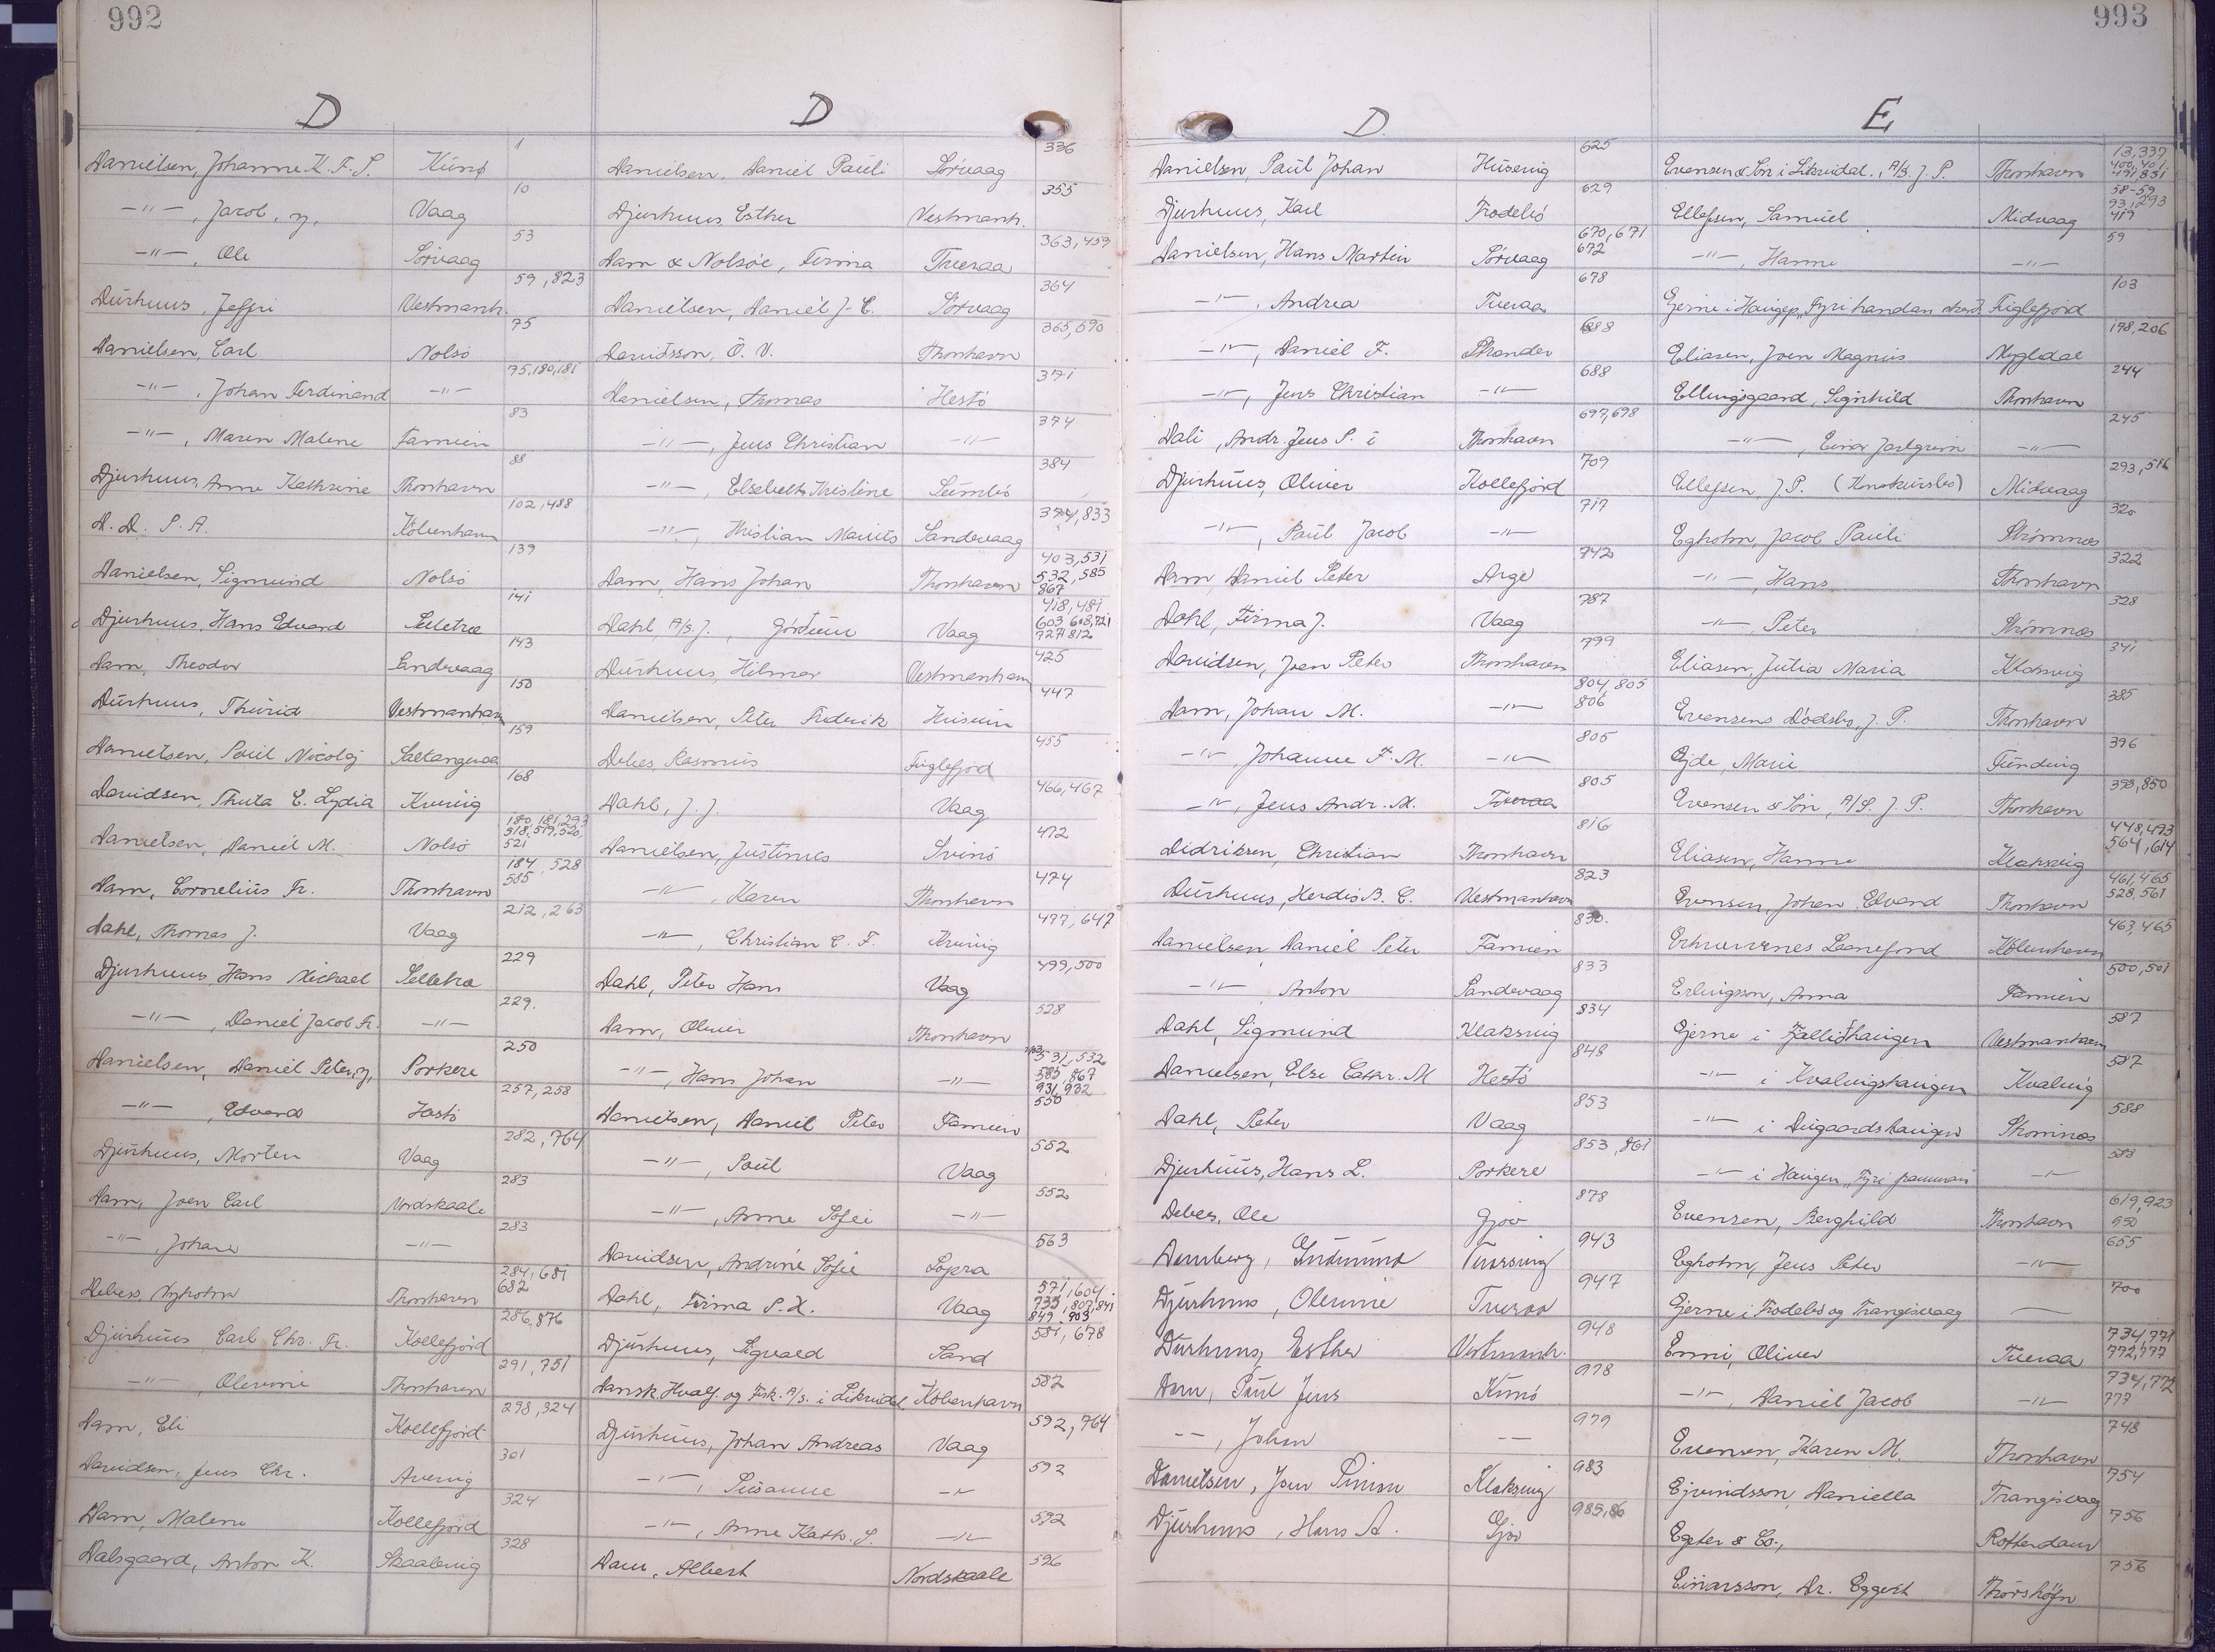 992
D
Danielsen, Johanne K. F. S. Kunø 1
-"-, Jacob, y, Vaag 10
-"-, Ole Sørvaag 53
Durhuus, Jeffri Vestmanh. 59, 823
Danielsen, Carl Nolsø 75
-"-, Johan Ferdinand -"- 75, 180, 181
-"-, Maren Malene Famien 83
Djurhuus, Anne Kathrine Thorshavn 88
D. D. P. A. København 102, 488
Danielsen, Sigmund Nolsø 139
Djurhuus, Hans Edvard Selletræ 141
Dam, Theodor Sandevaag 143
Durhuus, Thurid Vestmanhavn 150
Danielsen, Poul Nicolaj Saltangeraa 159
Davidsen, Thuta E. Lydia Kvivig 168
Danielsen, Daniel M. Nolsø 180, 181, 293 518, 519, 520, 521
Dam, Cornelius Fr. Thorshavn 184, 528 585
Dahl, Thomas J. Vaag 212, 263
Djurhuus, Hans Michael Selletræ 229
-"-, Daniel Jacob Fr. -"- 229.
Danielsen, Daniel Peter, y, Porkere 250
-"-, Edvard Hestø 257, 258
Djurhuus, Morten Vaag 282, 764
Dam, Joen Carl Nordskaale 283
-"-, Johan -"- 283
Debess, Nyholm Thorshavn 284, 681 682
Djurhuus, Carl Chr. Fr. Kollefjord 286, 876
-"-, Olevine Thorshavn 291, 751
Dam, Eli Kollefjord 298, 324
Davidsen, Jens Chr. Arnevig 301
Dam, Malene Kollefjord 324
Dalsgaard, Anton K. Skaalevig 328
D
Danielsen, Daniel Pauli Sørvaag 336
Djurhuus, Esther Vestmanh. 355
Dam & Nolsøe, Firma Tveraa 363, 459
Danielsen, Daniel J. C. Sørvaag 364
Davidsson, Ó. V. Thorshavn 365, 690
Danielsen, Thomas Hestø 371
-"-, Jens Christian -"- 374
-"-, Elsebeth Kristine Sumbø 384
-"-, Kristian Marius Sandevaag 394, 833
Dam, Hans Johan Thorshavn 403, 531 532, 585 867
Dahl, A/S J., Gørdum Vaag 418, 481 603, 618, 721 727, 812
Durhuus, Hilmar Vestmanhavn 425
Danielsen, Peter Frederik Husum 447
Debes, Rasmus Fuglefjord 455
Dahl, J. J. Vaag 466, 467
Danielsen, Justinus Svinø 472
-"-, Karen Thorshavn 474
-"-, Christian C. F. Kvivig 497, 647
Dahl, Peter Hans Vaag 499, 500
Dam, Oliver Thorshavn 528
-"-, Hans Johan -"- 531, 532 585, 867 931, 932
Danielsen, Daniel Peter Famien 550
-"-, Poul Vaag 552
-"-, Anne Sofie -"- 552
Davidsen, Andrine Sofie Sopra 563
Dahl, Firma P. X. Vaag 571, 604 735, 807, 841 849, 903
Djurhuus, Sigvald Sand 581, 678
Dansk Hvalf. og Fisk. A/S. i Likvidat. København 582
Djurhuus, Johan Andreas Vaag 592, 764
-"-, Susanne -"- 592
-"-, Anne Kath. S. -"- 592
Dam, Albert Nordskaale 596
993
D.
Danielsen, Paul Johan Husevig 625
Djurhuus, Karl Frodebø 629
Danielsen, Hans Martin Sørvaag 670, 671 672
-"-, Andrea Tveraa 678
-"-, Daniel F. Strander 688
-"-, Jens Christian -"- 688
Dali, Andr. Jens P. i Thorshavn 697, 698
Djurhuus, Oliver Kollefjord 709
-"-, Paul Jacob -"- 717
Dam, Daniel Peter Arge 742
Dahl, Firma J. Vaag 787
Davidsen, Joen Peter Thorshavn 799
Dam, Johan M. -"- 804, 805 806
-"-, Johanne F. M. -"- 805
-"-, Jens Andr. M. Tveraa 805
Didriksen, Christian Thorshavn 816
Durhuus, Herdis B. C. Vestmanhavn 823
Danielsen, Daniel Peter Famien 830.
-"-, Anton Sandevaag 833
Dahl, Sigmund Klaksvig 834
Danielsen, Else Cathr. M Hestø 848
Dahl, Peter Vaag 853
Djurhuus, Hans L. Porkere 853, 861
Debes, Ole Gjov 878
Demberg, Gudmund Thorsvig 943
Djurhuus, Olevine Tveraa 947
Durhuus, Esther Vestmanh. 948
Dam, Poul Jens Kunø 978
-"-, Johan -- 979
Danielsen, Joen Simon Klaksvig 983
Djurhuus, Hans A. Gjov 985, 86
E
Evensen & Søn i Likvidat., A/S. J. P. Thorshavn 13, 337 400, 401 491, 851
Ellefsen, Samuel Midvaag 58-59 93, 293 419
-"-, Hanne -"- 59
Ejerne i Haugen "Fyri handan" Fuglefjord 103
Eliasen, Joen Magnus Mygledal 198, 206
Ellingsgaard, Signhild Thorshavn 244
-"-, Einar Jarlgrim -"- 245
Ellefsen, J. P. (Konkursbo) Midvaag 293, 516
Egholm, Jacob Pauli Strømnæs 320
-"-, Hans Thorshavn 322
-"-, Peter Strømnæs 328
Eliasen, Julia Maria Klaksvig 341
Evensens Dødsbo, J. P. Thorshavn 385
Ejde, Marie Funding 396
Evensen & Søn, A/S. J. P. Thorshavn 398, 850
Eliasen, Hanne Klaksvig 448, 473 564, 614
Evensen, Johan Edvard Thorshavn 461, 465 528, 561
Erhvervenes Laanefond København 463, 465
Erlingsson, Anna Famien 500, 501
Ejerne i Fjallithaugen Vestmanhavn 587
-"- i Kvalvigshaugen Kvalvig 587
-"- i Dugaardshaugen Strømnæs 588
-"- i Haugen "Fyri framman" -"- 588
Evensen, Berghild Thorshavn 619, 923 950
Egholm, Jens Peter -"- 655
Ejerne i Frodebø og Trangisvaag — 700
Enni, Oliver Tveraa 734, 771 772, 777
-"-, Daniel Jacob -"- 734, 772 777
Evensen, Karen M. Thorshavn 748
Ejvindsson, Daniella Trangisvaag 754
Egter & Co., Rotterdam 756
Einarsson, Dr. Eggert Thórshöfn 756